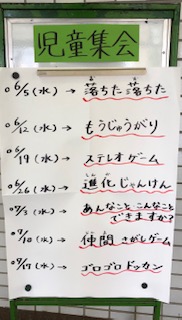 児童集会
○6/5(水)→ 落ちた落ちた
○6/12(水)→ もうじゅうがり
○6/19(水)→ ステレオゲーム
○6/26(水)→ 進化じゃんけん
○7/3(水)→ あんなこと こんなこと
できますか?
○7/10(水)→ 仲間さがしゲーム
○7/17(水)→ ゴロゴロドッカン